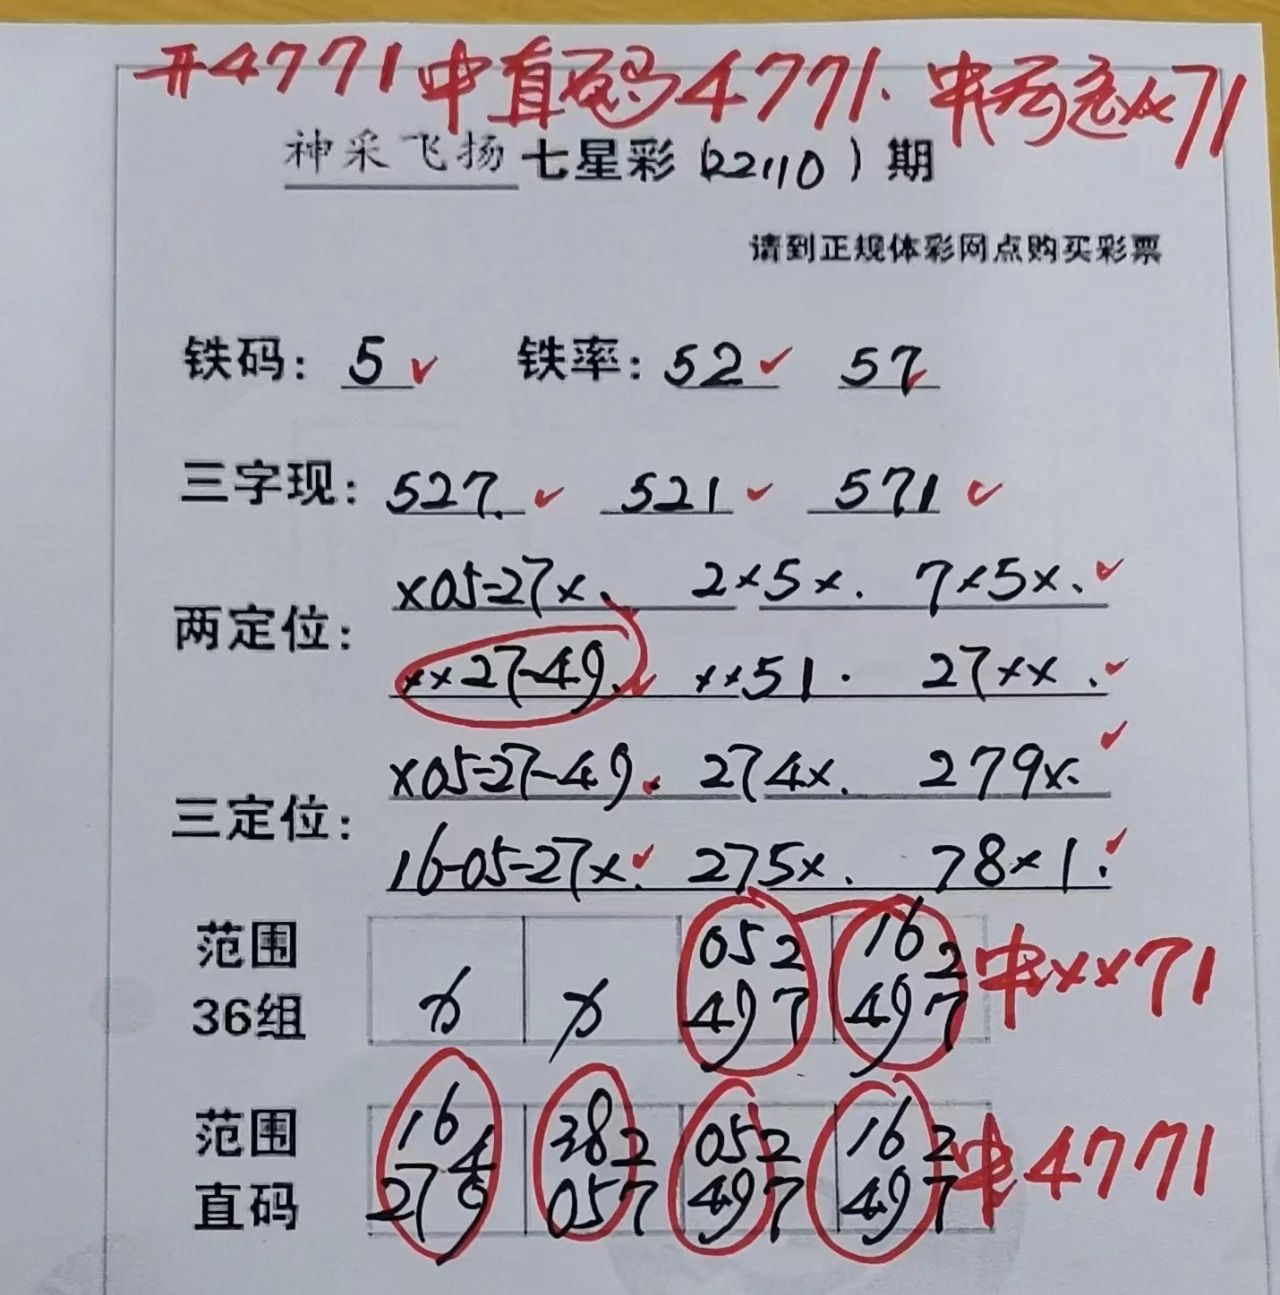 开4771 中直码4771. 中两定xx71
神采飞扬 七星彩(22110)期
请到正规体彩网点购买彩票
铁码: 5 ✓ 铁率: 52 ✓ 57 ✓
三字现: 527. ✓ 521 ✓ 571 ✓
x05=27x. 2x5x. 7x5x. ✓
两定位:
xx27-49. ✓ xx51. 27xx. ✓
x05=27-49. 274x. 279x. ✓
三定位:
16-05=27x. ✓ 275x. 78x1. ✓
范围 x x 052 162 中xx71
36组 497 497
范围 164 382 052 162 中4771
直码 279 057 497 497